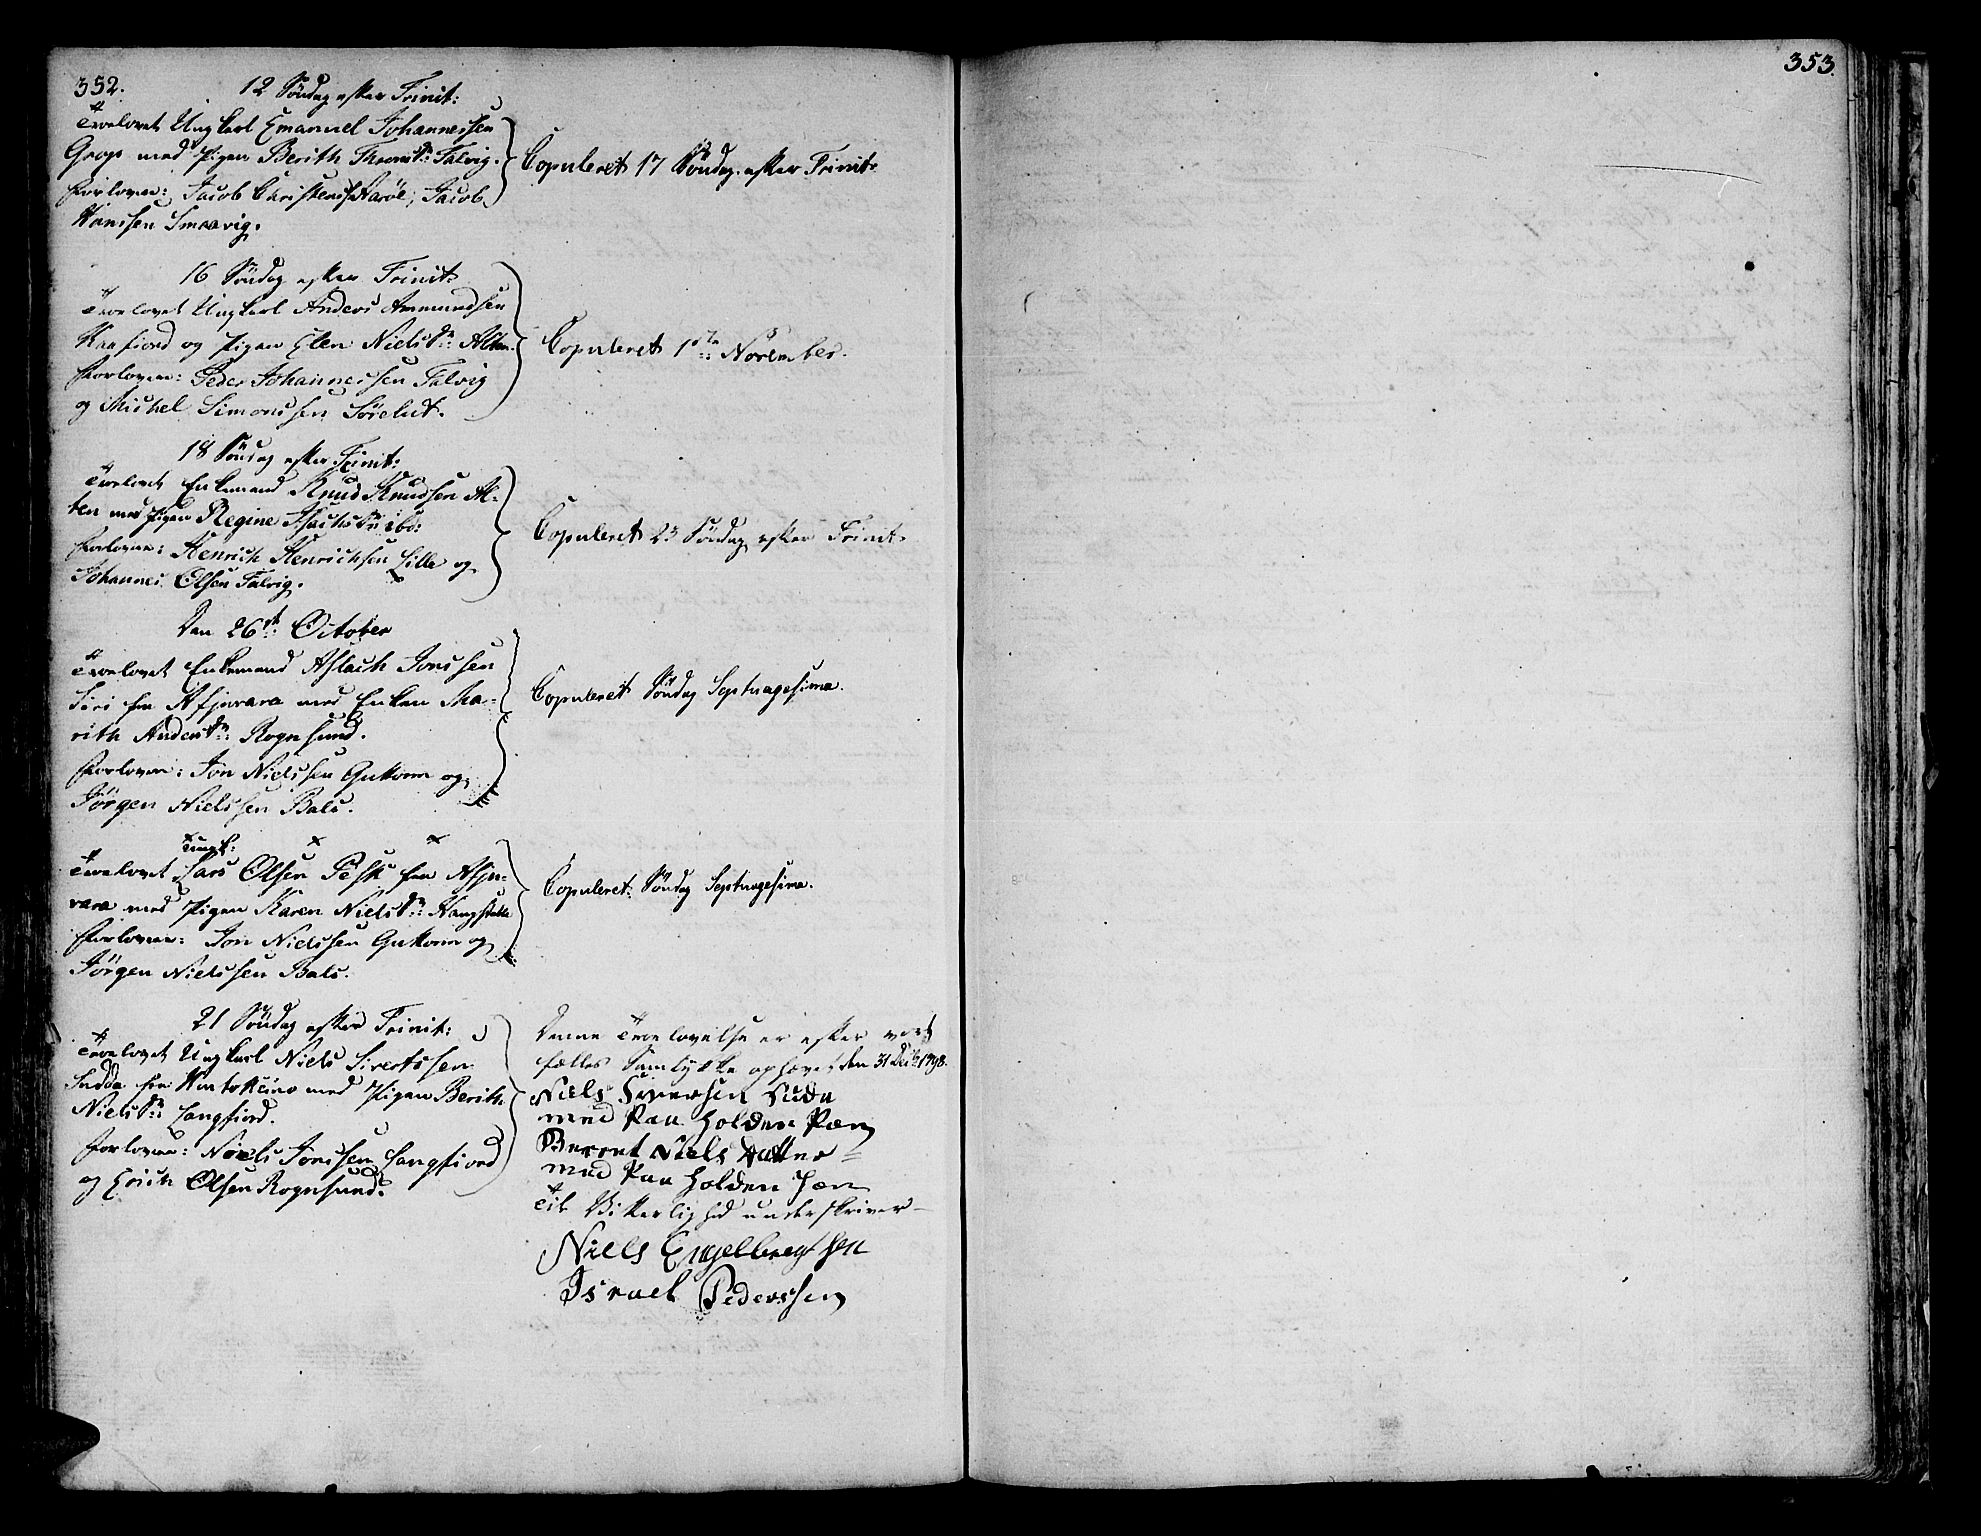 352.
12 Söndag efter Trinit:
Trolovet Ungkarl Emanuel Johannessen
Grop med Pigen Berith Thomsd: Talvig.
Forlover: Jacob Christenss Aaröe, Jacob
Hanssen Smaavig.
Copuleret 17 Söndag efter Trinit:
16 Söndag efter Trinit:
Trolovet Ungkarl Anders Ammundsen
Kaafiord og Pigen Elen Nielsdr: Alten.
Forlover: Peder Johannessen Talvig
og Michel Simonssen Sörelut.
Copuleret 1ste November.
18 Söndag efter Trinit:
Trolovet Enkemand Knud Knudsen Al-
ten med Pigen Regine Isachsdr: ibd:
Forlover: Henrich Henrichsen Lille og
Johannes Olsen Talvig.
Copuleret 23 Söndag efter Trinit.
Den 26de October
Trolovet Enkemand Aslach Jonssen
Siri fra Afjuvara med Enken Ma-
rith Andersdr: Rognsund.
Forlover: Jon Nielssen Gukorm og
Jörgen Nielssen Bals.
Copuleret Söndag Septuagesima.
Ungk:
Trolovet Lars Olsen Pesk fra Afju-
vara med Pigen Karen Nielsdr:
Forlover: Jon Nielssen Gukorm og
Jörgen Nielssen Bals.
Copuleret: Söndag Septuagesima.
21 Söndag efter Trinit:
Trolovet Ungkarl Niels Sivertssen
Sudda fra Koutokeino med Pigen Berith
Nielsdr: Langfiord.
Forlover: Niels Jonssen Langfiord
og Erich Olsen Rognsund.
Denne Trolovelse er efter vort
fælles Samtykke ophævet den 31 Decbr 1798.
Niels Siversen Suda
med Paa Holden Pæn
Berret Niels Datter
med Paa Holden Pæn
Til Vitterlighed underskriver
Niels Engelbregtsen
Israel Pederssen
353.